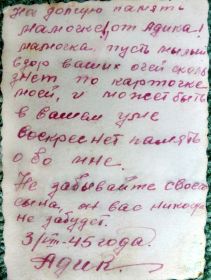 На долгую память
мамочке от Адика!
мамочка, пусть милый
взор ваших очей сколь
знет по карточке
моей, и может быть
в вашем уме
воскреснет память
обо мне.
Не забывайте своего
сына, он вас никогда
не забудет.
3/VIII-45 года.
Адик.